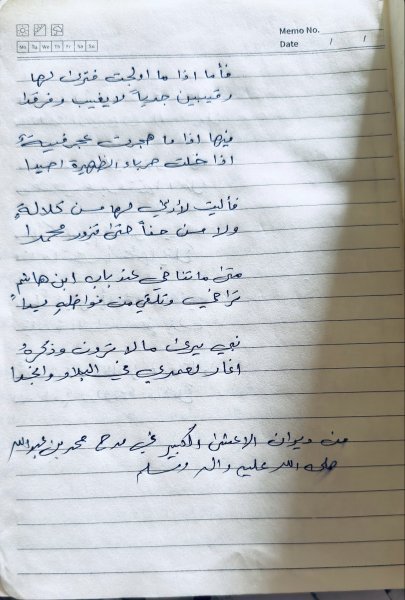 Memo No.
Mo Tu We Th Fr Sa Su
Date / /
فأما اذا ما ادلجت فترى لها
رقيبين جدياً لا يغيب وفرقدا
فيها اذا ما هجرت عجرفية
اذا خلت حرباء الظهيرة اصيدا
فآليت لا أرثي لها من كلالةٍ
ولا من حفاً حتى تزور محمدا
متى ما تناخي عند باب ابن هاشمٍ
تراحي وتلقي من فواضله يدا
نبي يرى ما لا ترون وذكرهُ
اغار لعمري في البلاد وانجدا
من ديوان الاعشى الكبير في مدح محمد بن عبدالله
صلى الله عليه واله وسلم